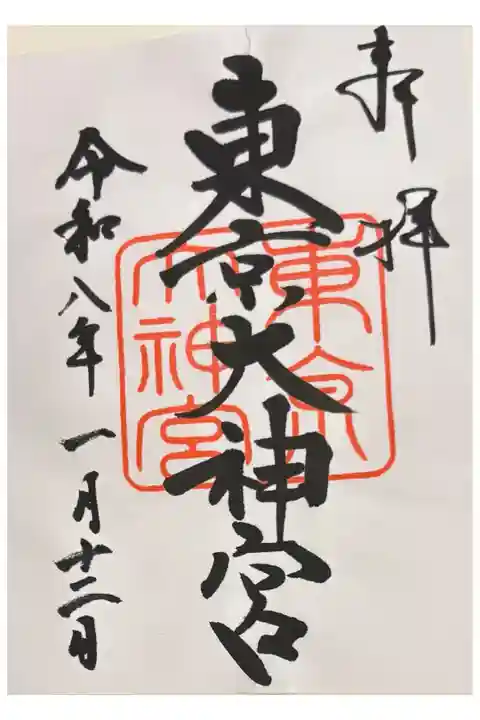 奉拝
東京大神宮
東京
大神宮
令和八年 一月十二日